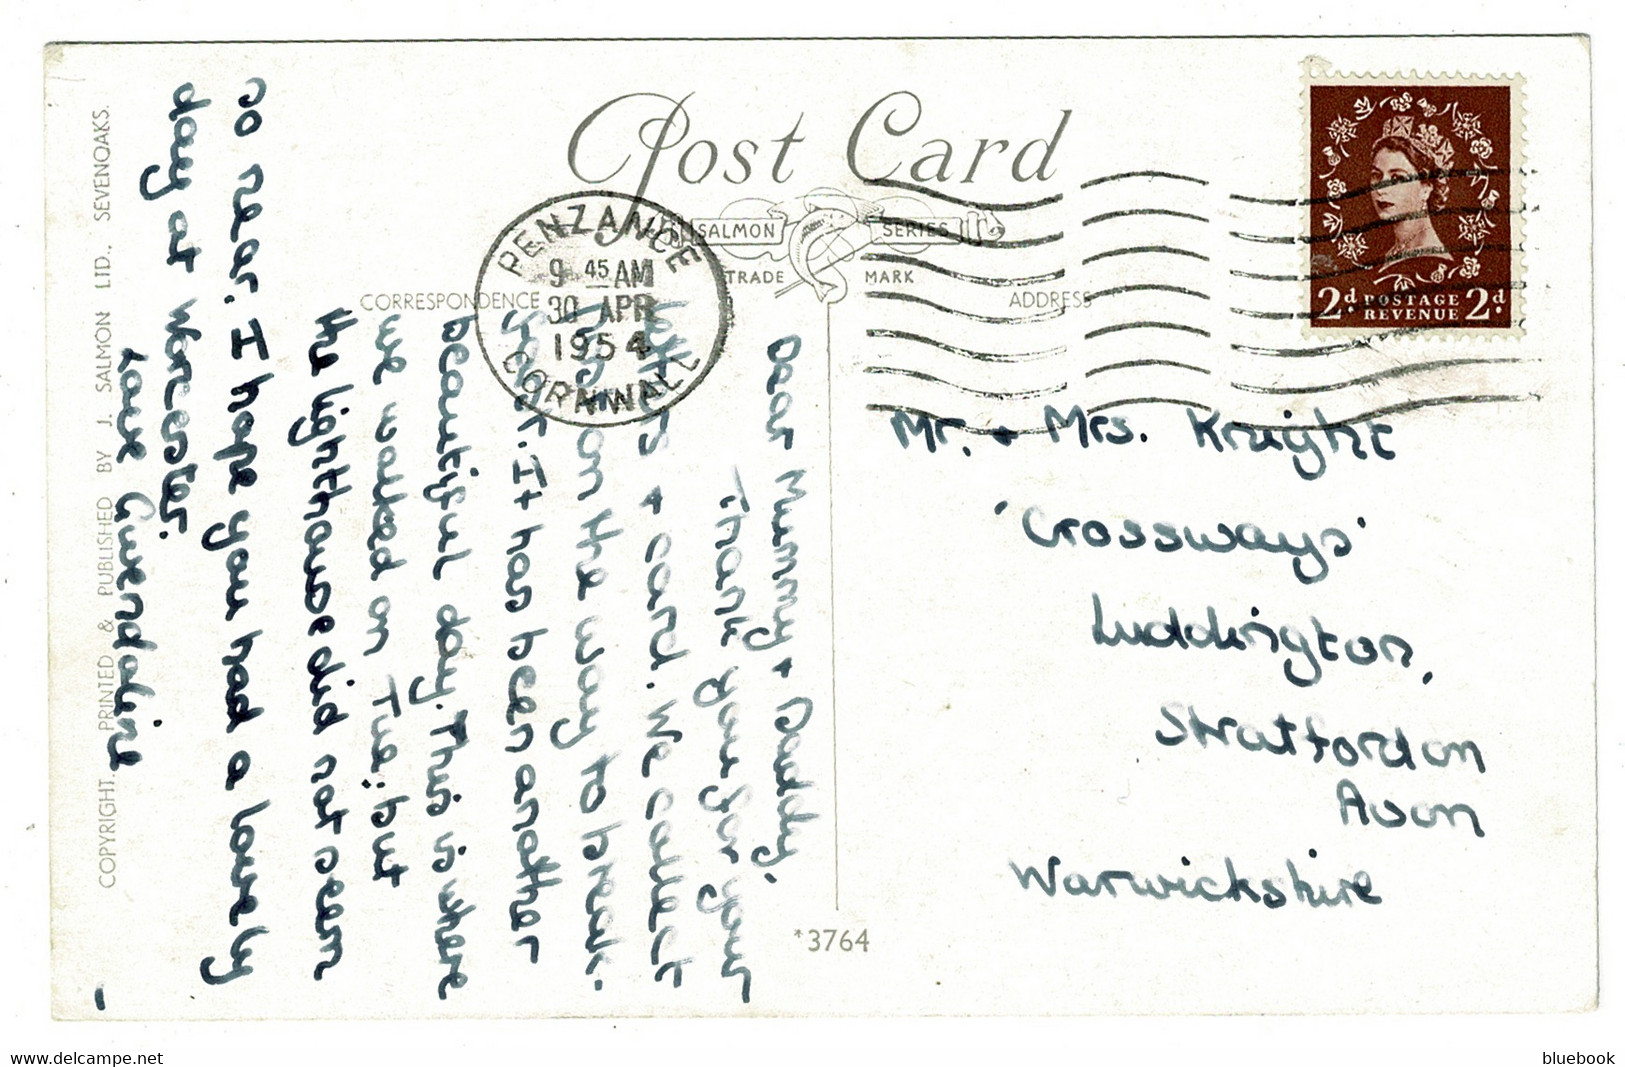 Post Card
SALMON SERIES
TRADE MARK
CORRESPONDENCE
ADDRESS
PENZANCE
9 45 AM
30 APR
1954
CORNWALL
2d POSTAGE 2d
REVENUE
Dear Mummy + Daddy,
Thank you for your
letters + card. We collect
on the way to break-
It has been another
beautiful day. This is where
we walked on Tue; but
the lighthouse did not seem
so near. I hope you had a lovely
day at Worcester.
Love Gwendoline
Mr. + Mrs. Knight
'Crossways'
Luddington,
Stratfordon
Avon
Warwickshire
*3764
COPYRIGHT. PRINTED & PUBLISHED BY J. SALMON LTD., SEVENOAKS.
delcampe.net
bluebook